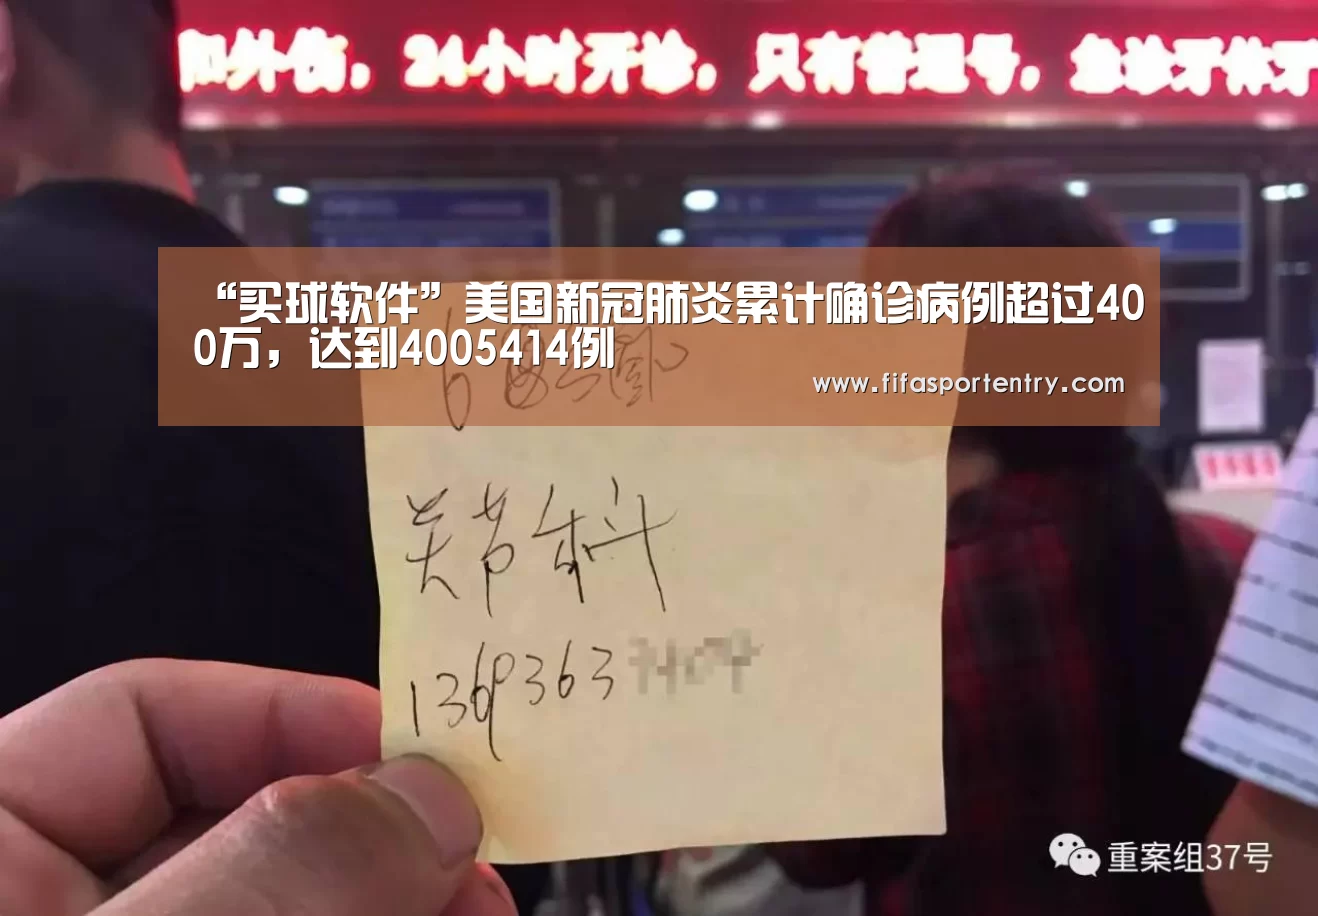 和外伤，24小时开诊，只有普通号，急诊牙体牙
“买球软件”美国新冠肺炎累计确诊病例超过40
0万，达到4005414例
www.fifasportentry.com
6
关节科
1369363
重案组37号